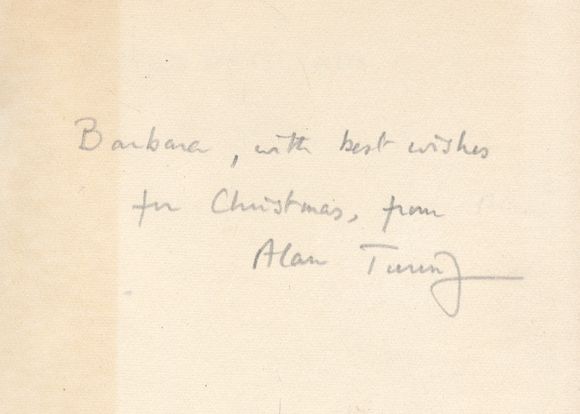 Barbara, with best wishes
for Christmas, from
Alan Turing